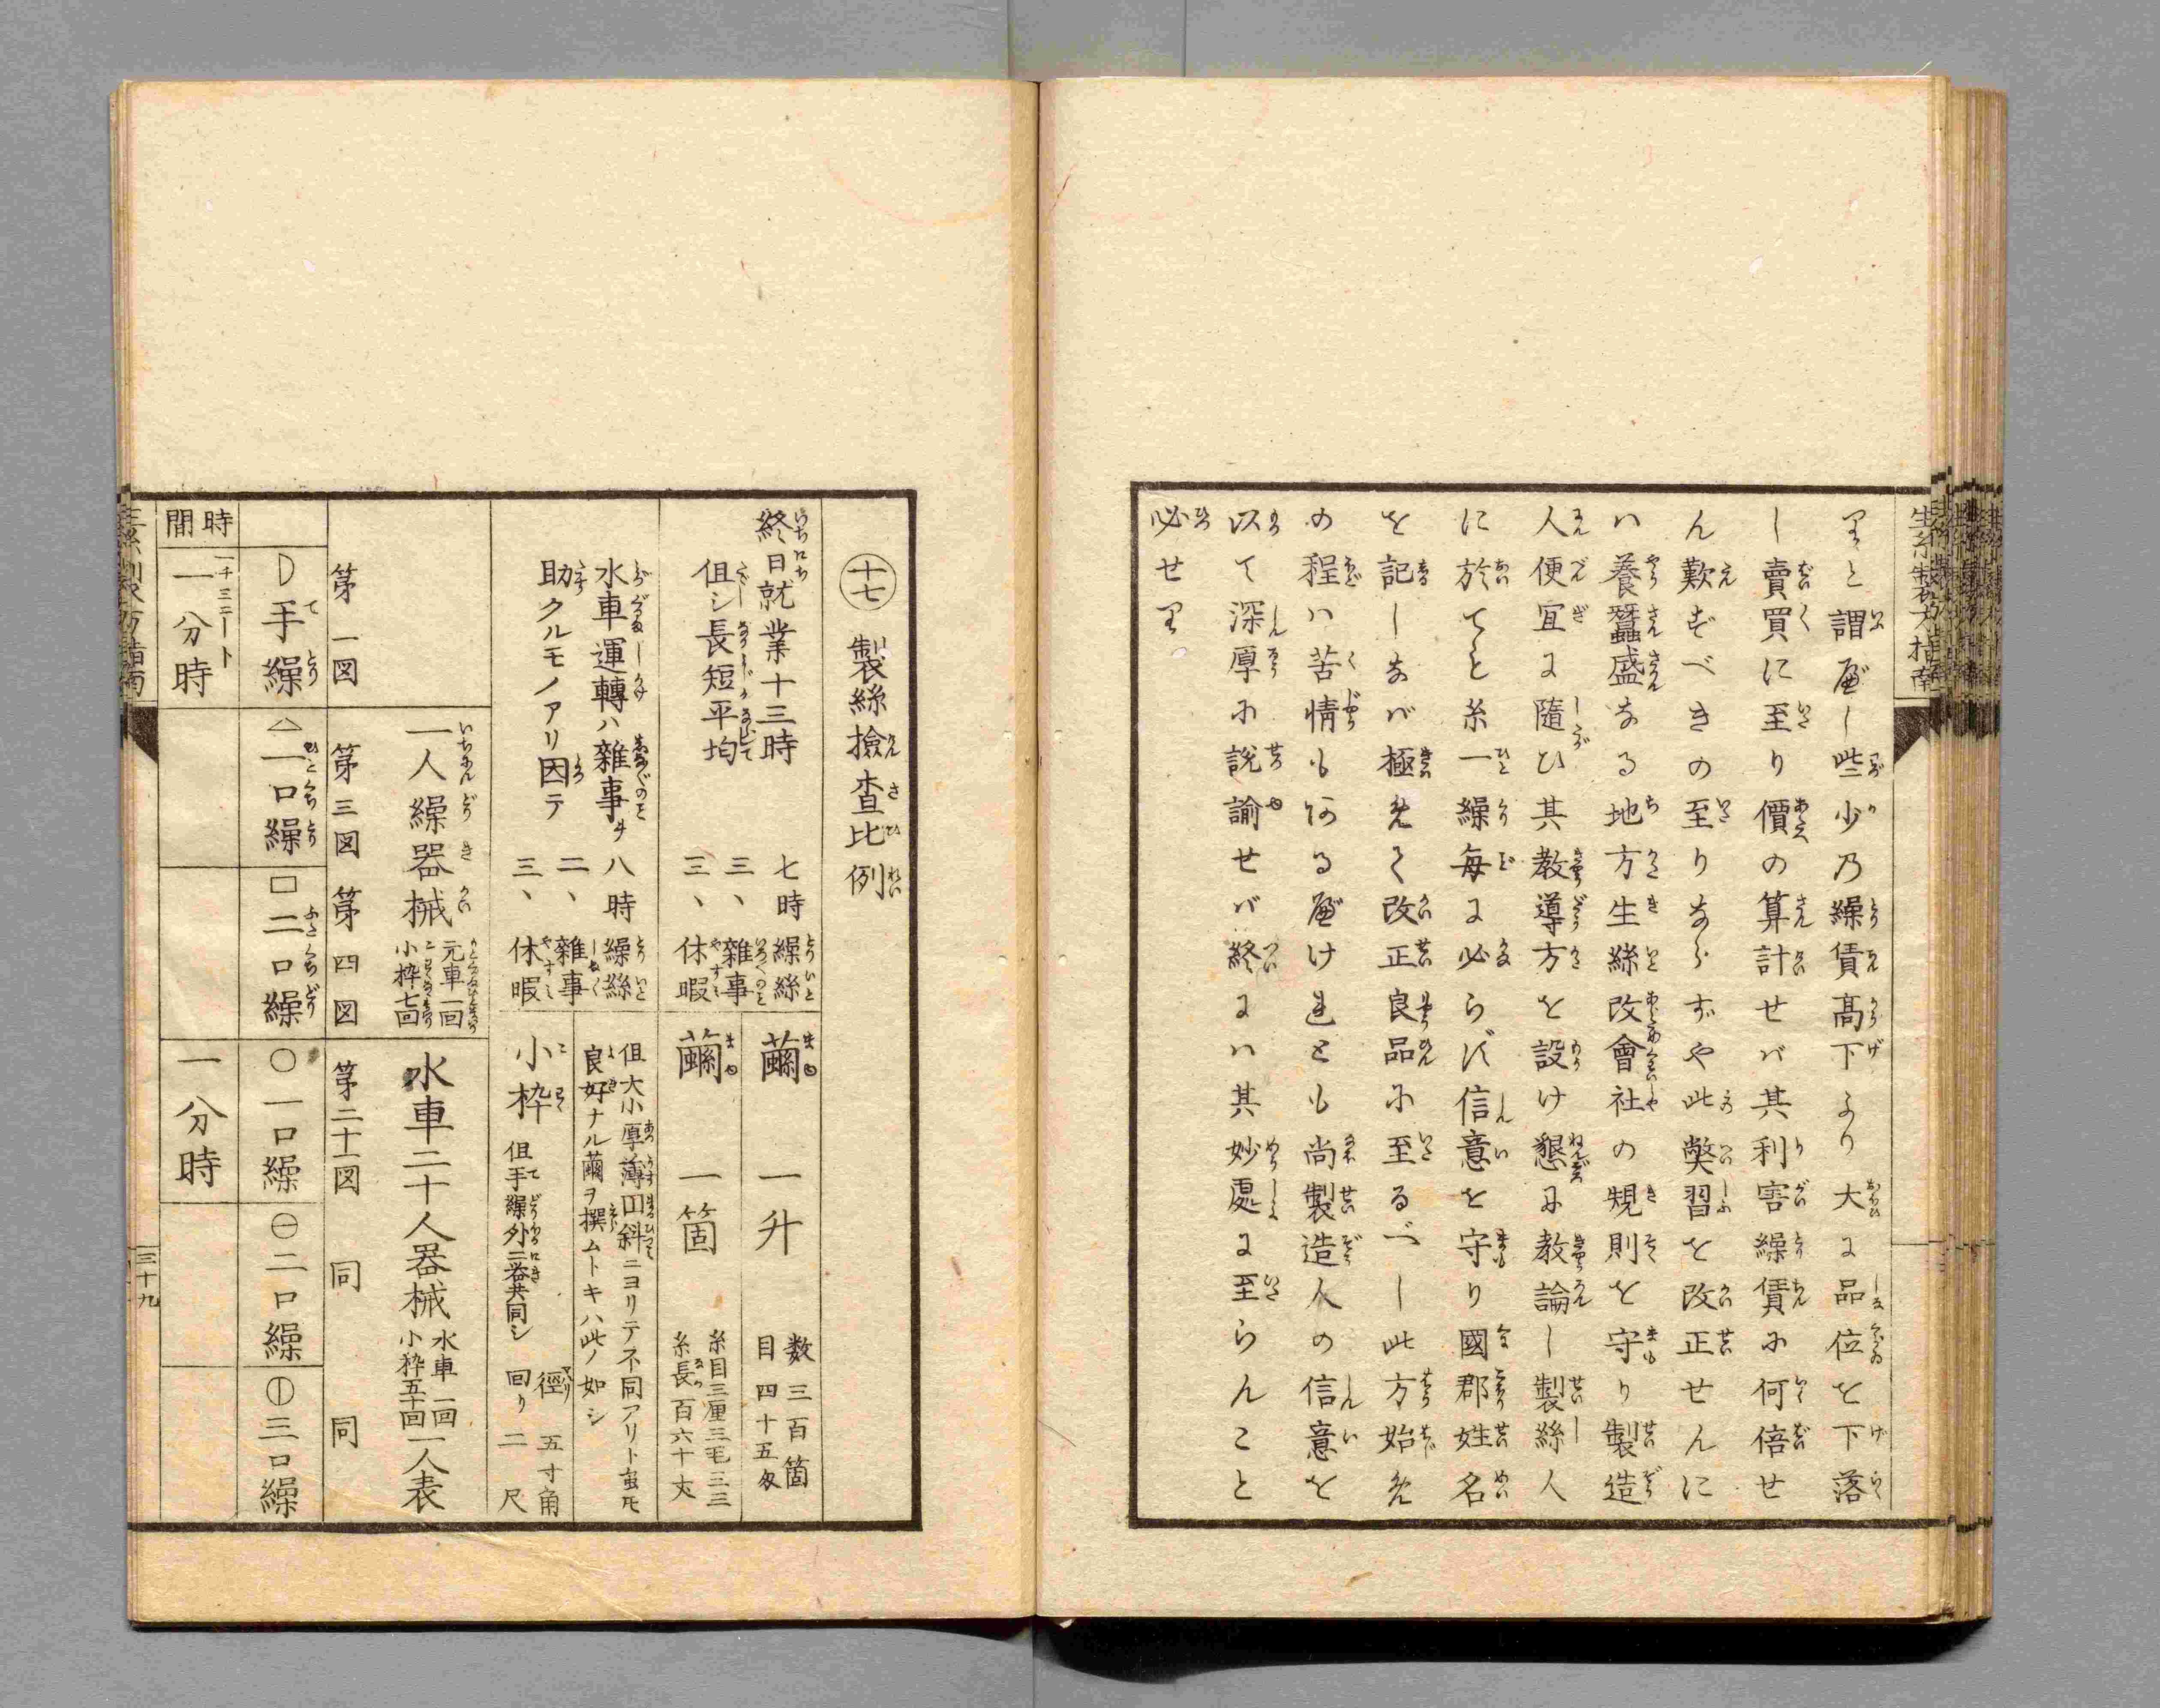 生糸製方指南
りと謂べし些少乃繰賃髙下より大に品位を下落
し賣買に至り價の算計せバ其利害繰賃に何倍せ
ん歎ずべきの至りならずや此弊習を改正せんに
ハ養蚕盛なる地方生絲改會社の規則を守り製造
人便宜に隨ひ其教導方を設け懇に教諭し製絲人
に於てを糸一繰毎に必らず信意を守り國郡姓名
を記しなバ極めて改正良品に至るべし此方始め
の程ハ苦情も何る べけれとも尚製造人の信意を
以て深厚に説諭せバ終にハ其妙處に至らんこと
必せり
十七 製絲撿査比例
終日就業十三時
但シ長短平均
七時 繰絲
三、 雜事
三、 休暇
繭 一升 数三百箇
目四十五匁
繭 一箇 糸目三厘三毛三三
糸長百六十丈
水車運轉ハ雜事ヲ
助クルモノアリ因テ
八時 繰絲
二、 雜事
三、 休暇
但大小厚薄囬斜ニヨリテ不同アリト虽圧
良好ナル繭ヲ撰ムトキハ此ノ如シ
小枠 但手繰外二器共同シ
徑 五寸角
回り 二尺
一人繰器械 元車一回
小枠七回
水車二十人器械 水車一回
小枠五十回 一人表
第一図
第三図
第四図
第二十一図
同
同
手繰
△一口繰
□二口繰
○一口繰
㊀二口繰
⦶三口繰
時間
一分時
一分時
三十九